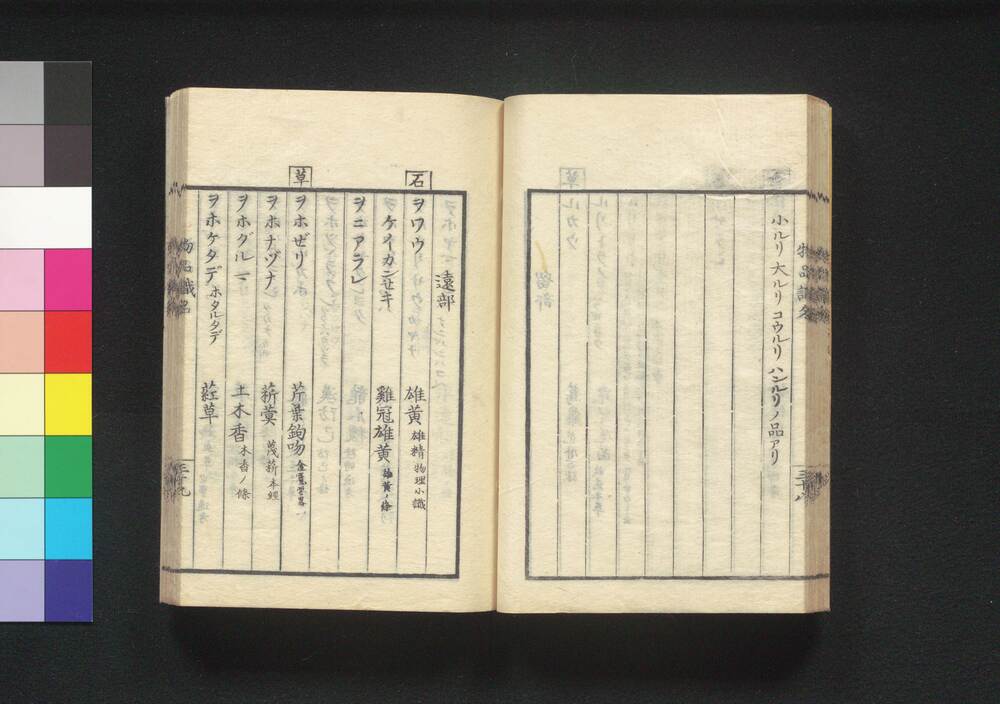 小ルリ 大ルリ コウルリ ハシルリノ品アリ
三十八
遠部
石
ヲワウ 雄黄 雄精 物理小識
ヲケイクハンセキ 雞冠雄黄 雄黄ノ條
ヲニアラレ
草
ヲホゼリ 芹葉鉤吻
ヲホナヅナ 菥蓂 蔑菥 本經
ヲホグルマ 土木香 木香ノ條
ヲホケタデ ホタルタデ 葒草
物品識名
三十九